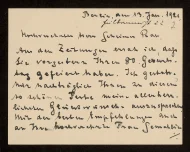 Berlin, am 13. Jan. 1921
Hochverehrter Herr Geheimer Rat.
Aus den Zeitungen ersah ich, daß
Sie vorgestern Ihren 80. Geburts-
tag gefeiert haben. Ich gestatte
mir nachträglich Ihnen zu diesem
so schönen Feste meine allerherz-
lichsten Glückwünsche auszusprechen
Mit den besten Empfehlungen auch
an Ihre hochverehrte Frau Gemahlin